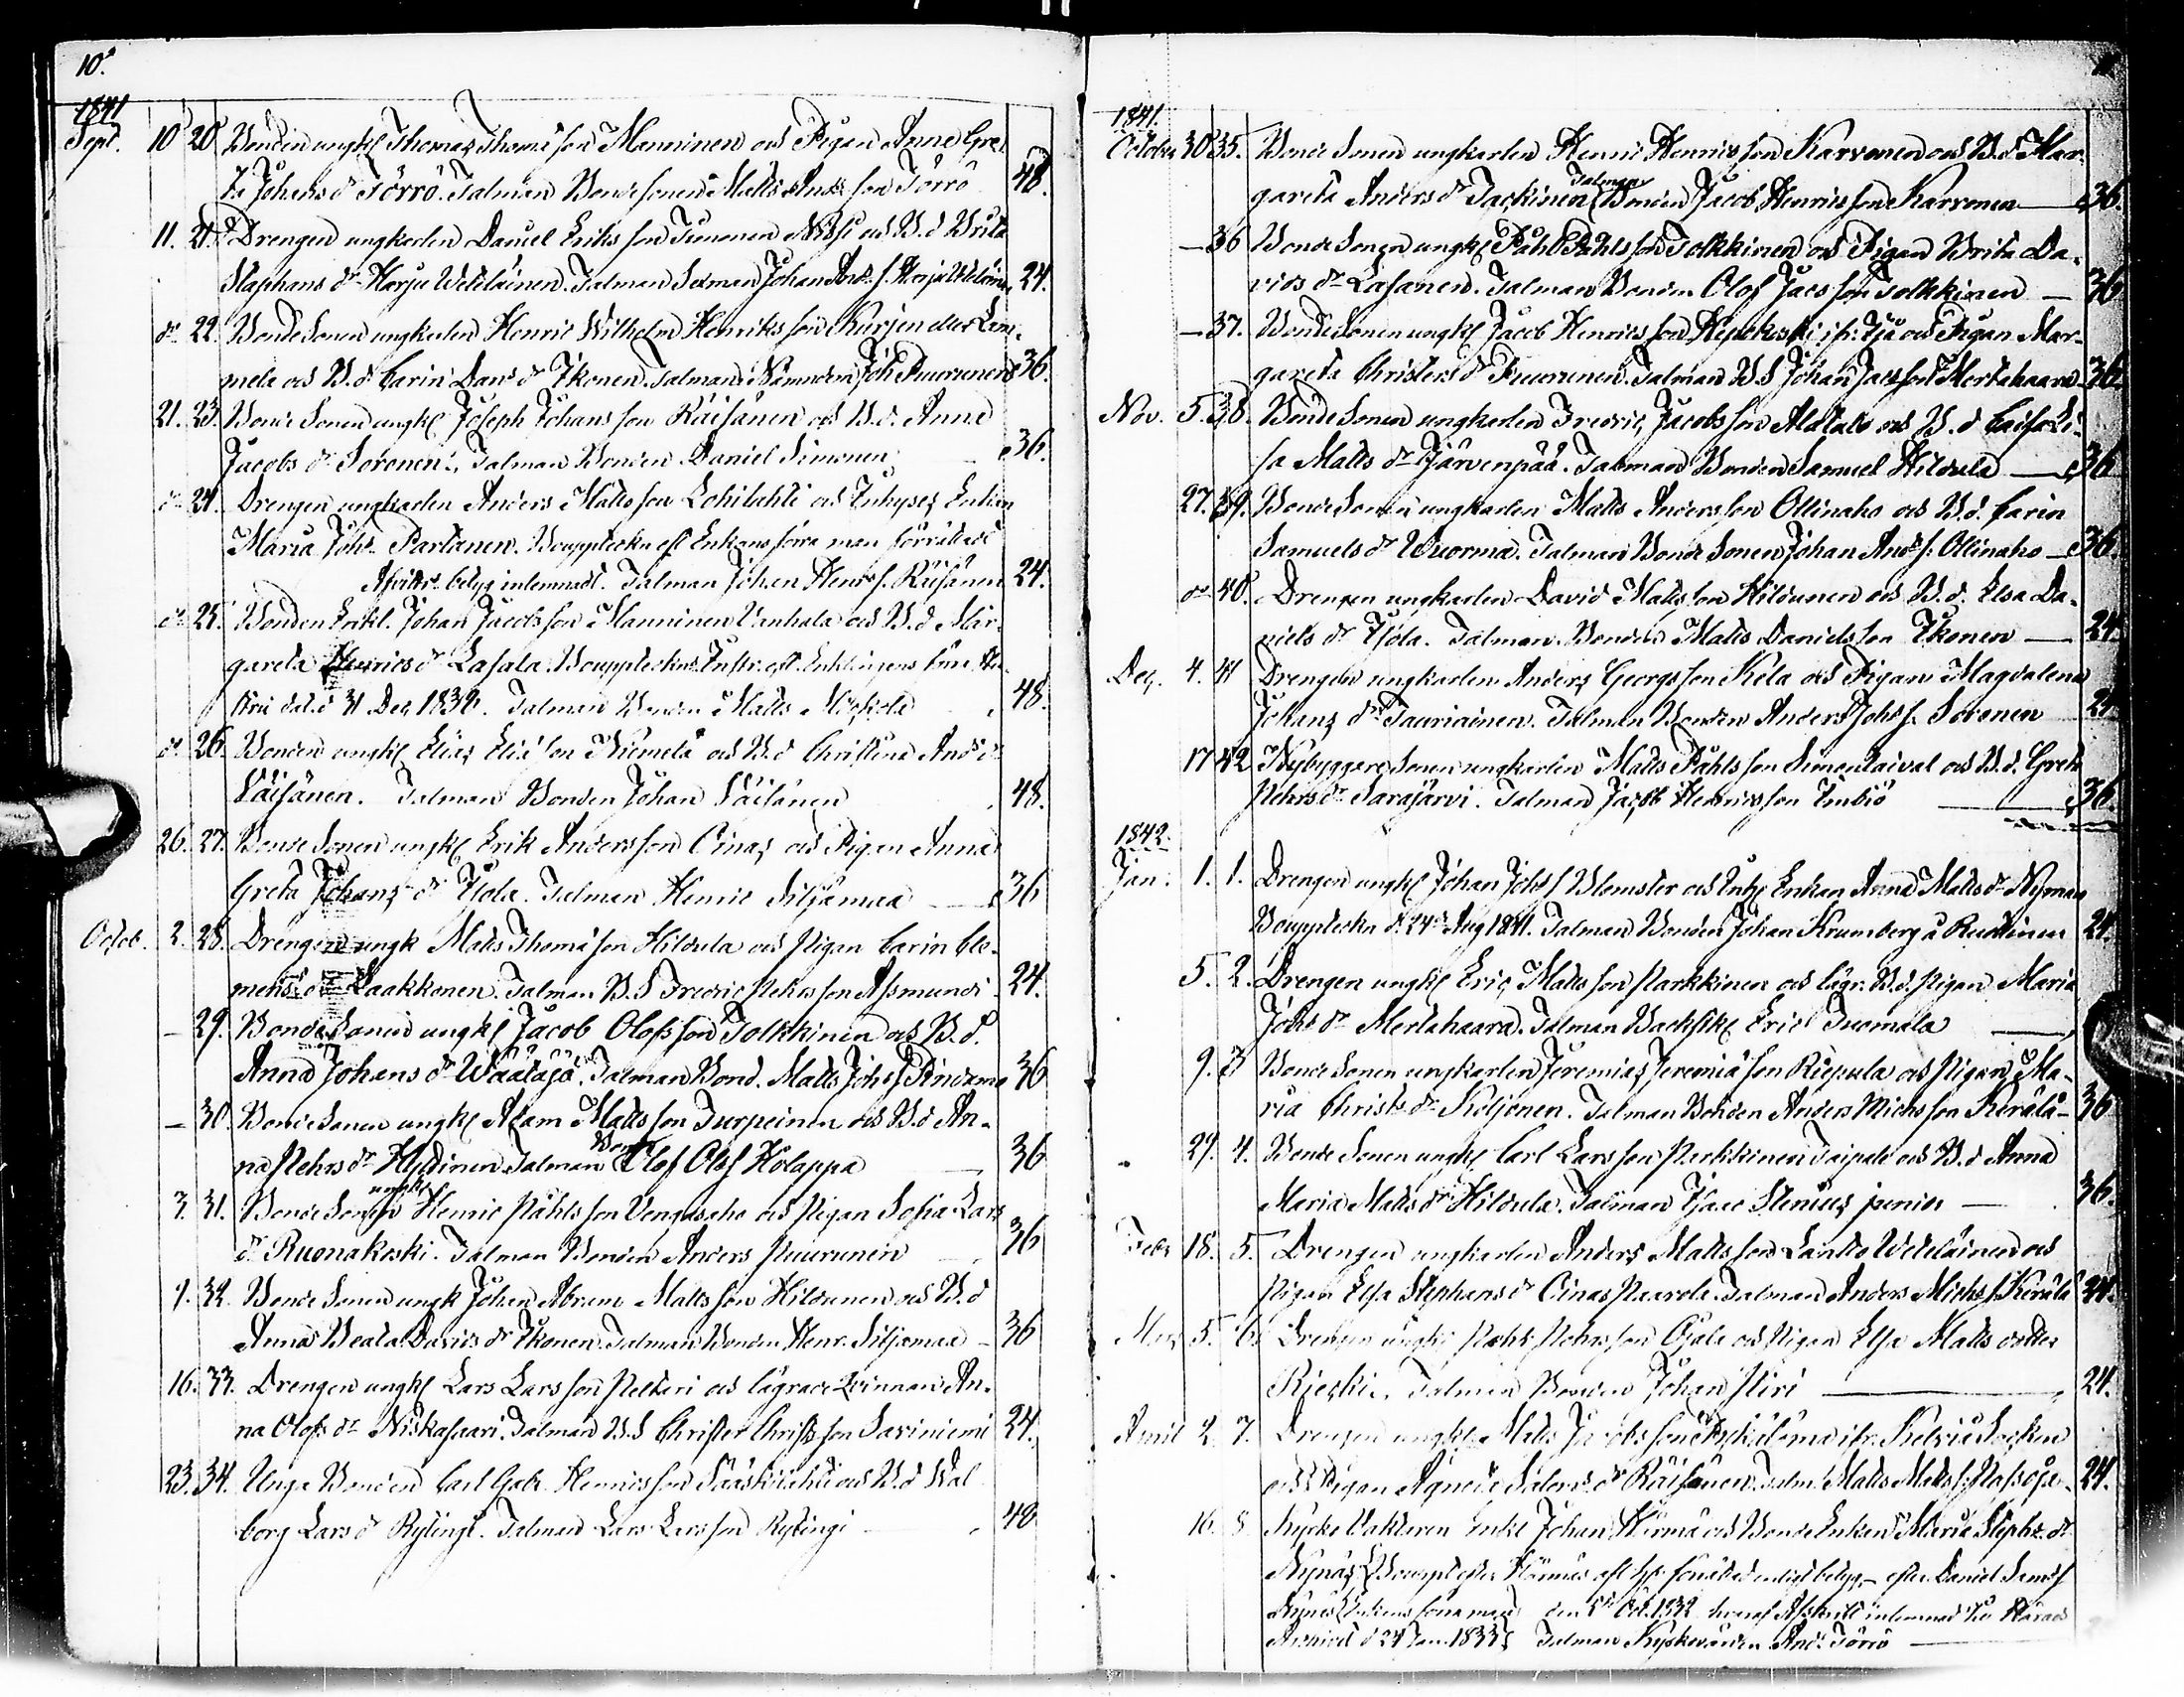 10.
1841
Sept. 10 20. Bonden ungk. Thomas Thomæson Manninen och Pigan Anna Gre-
ta Johans dr Törrö. Talman Bondesonen Matts Ands son Törrö 48.
11. 21. Drengen ungkarlen Daniel Eriksson Timonen och B.d. Brita
Staphans dr Harju Weteläinen. Talman Johan And. s. Harju Weteläinen 24.
dr 22. Bonde Sonen ungkarlen Henric Wilhelm Henriksson Kurjen eller Lam-
mela och B.d. Carin Davs dr Ikonen. Talman Nämndem Joh Puurunen 36.
21. 23. Bonde Sonen ungk Joseph Johansson Räisänen och B.d. Anna
Jacobs dr Soronen. Talman Bonden Daniel Simonen 36.
dr 24. Drengen ungkarlen Anders Mattsson Lohilahti och Enkan
Maria Johs Partanen. Bouppteckn eft Enkans förra man förrättad
belyg inlemnadt. Talman Johan Henrs s. Räisänen 24.
dr 25. Bonden Enkl. Johan Jacobsson Manninen Vanhala och B.d. Mar-
gareta Henrics dr Lasala. Bouppteckn. Instr. eft. Enklingens förra
dat. d 31 Dec 1839. Talman Bonden Matts 48.
dr 26. Bonden ungk Elias Eliæson Niemelä och B.d. Christina Ands dr
Väisänen. Talman Bonden Johan Väisänen 48.
26. 27. Bonde Sonen ungk Erik Andersson Cinas och Pigan Anna
Greta Johans dr Ijola. Talman Henric Siljamaa 36
Octob. 2. 28. Drengen ungk Matts Thomæson Hildula och Pigan Carin Cle-
mens dr Laakkonen. Talman B.S. Fredric Pehrsson Asmundi 24.
— 29. Bonde Sonen ungk Jacob Olofsson Tolkkinen och B.d.
Anna Johans dr Wäätäjä. Talman Bond. Matts Johs s Pindama 36
— 30. Bonde Sonen ungk Adam Mattsson Turpeinen och B.d. An-
na Pehrs dr Hyttinen. Talman Bon Olof Olofs Holappa 36
3. 31. Bonde Sonen ungk Henric Påhlsson Vengasaho och Pigan Sofia Lars
dr Ruonakoski. Talman Bonden Anders Puurunen 36
9. 32. Bonde Sonen ungk Johan Abram Mattsson Hildunen och B.d
Anna Beata Davids dr Ikonen. Talman Bonden Henr. Siljamaa 36
16. 33. Drengen ungk Lars Larsson Pelttari och lägrade Qvinnan An-
na Olofs dr Niskasaari. Talman B.S Christer Christsson Saviniemi 24.
23. 34. Unga Bonden Carl Gabr. Henricsson Sääskilahti och B.d Wal-
borg Lars dr Rytingi. Talman Lars Larsson Rytingi 48
1841.
October 30 35. Bonde Sonen ungkarlen Henric Henricsson Karvonen och B.d. Mar-
gareta Anders dr Tackinen Talman Bonden Jacob Henricsson Karvonen 36.
— 36 Bonde Sonen ungk Påhl Påhlsson Tolkkinen och Pigan Brita Da-
vids dr Lasanen. Talman Bonden Olof Jacsson Tolkkinen — 36
— 37. Bonde Sonen ungk Jacob Henricsson och Pigan Mar-
gareta Christers dr Puurunen. Talman B S Johan Jacsson Mertahaara 36.
Nov. 5. 38. Bonde Sonen ungkarlen Fredric Jacobsson Alatalo och B.d Caisa Li-
sa Matts dr Järvenpää. Talman Bonden Samuel Hildula — 36
27. 39. Bonde Sonen ungkarlen Matts Andersson Ollinaho och B.d. Carin
Samuels dr Wuorma. Talman Bonde Sonen Johan Ands s. Ollinaho — 36.
dr 40. Drengen ungkarlen David Mattsson Hildunen och B.d. Elsa Da-
niels dr Ijola. Talman Bonden Matts Danielsson Ikonen — 24.
Dec. 4. 41 Drengen ungkarlen Anders Georgsson Kela och Pigan Magdalena
Johans dr Tauriainen. Talman Bonden Anders Johs s. Soronen 24.
17 42 Nybyggare Sonen ungkarlen Matts Påhlsson Simontaival och B.d. Greta
Pehrs dr Sarajärvi. Talman Jacob Henricsson Embiö — 36.
1842.
Jan. 1. 1. Drengen ungk Johan Johs s Blomster och Enkan Anna Matts dr Nyman
Bouppteckn d. 24 Aug 1841. Talman Bonden Johan Krumberg å Ruttinen 24.
5. 2. Drengen ungk Eric Mattsson Parkkinen och lägr. B.d. Pigan Maria
Johs dr Mertahaara. Talman Eric Tuomala —
9. 3 Bonde Sonen ungkarlen Jeremias Jeremiæson Riepula och Pigan Ma-
ria Christs dr Koljonen. Talman Bonden Anders Michsson Kerälä — 36
29. 4. Bonde Sonen ungk Carl Larsson Parkkinen Taipale och B.d Anna
Maria Matts dr Hildula. Talman Isaac Stenius junior — 36.
Febr 18. 5. Drengen ungkarlen Anders Mattsson Lantto Weteläinen och
Pigan Elsa Stephans dr Cinas Paavola. Talman Anders Michs s Kerälä 24.
Mars 5. 6. Drengen ungk Påhl Pehrsson Ojala och Pigan Elsa Matts dotter
Rieski. Talman Bonden Johan Piri — 24.
April 2 7. Drengen ungk Matts Jacobsson ifr. Kelviå Socken
och Pigan Agneta Salom dr Räisänen. Talm. Matts Matts s. 24.
16. 8 Kyrko Vaktaren Enkl Johan Hurma och Bonde Enkan Maria Stephs dr
Nynäs efter Daniel
Nynäs (Enkans förra man) den 5te Oct. 1832 inlemnad
d 24 Jan. 1833) Talman Kyrkovärden And. Törrö —